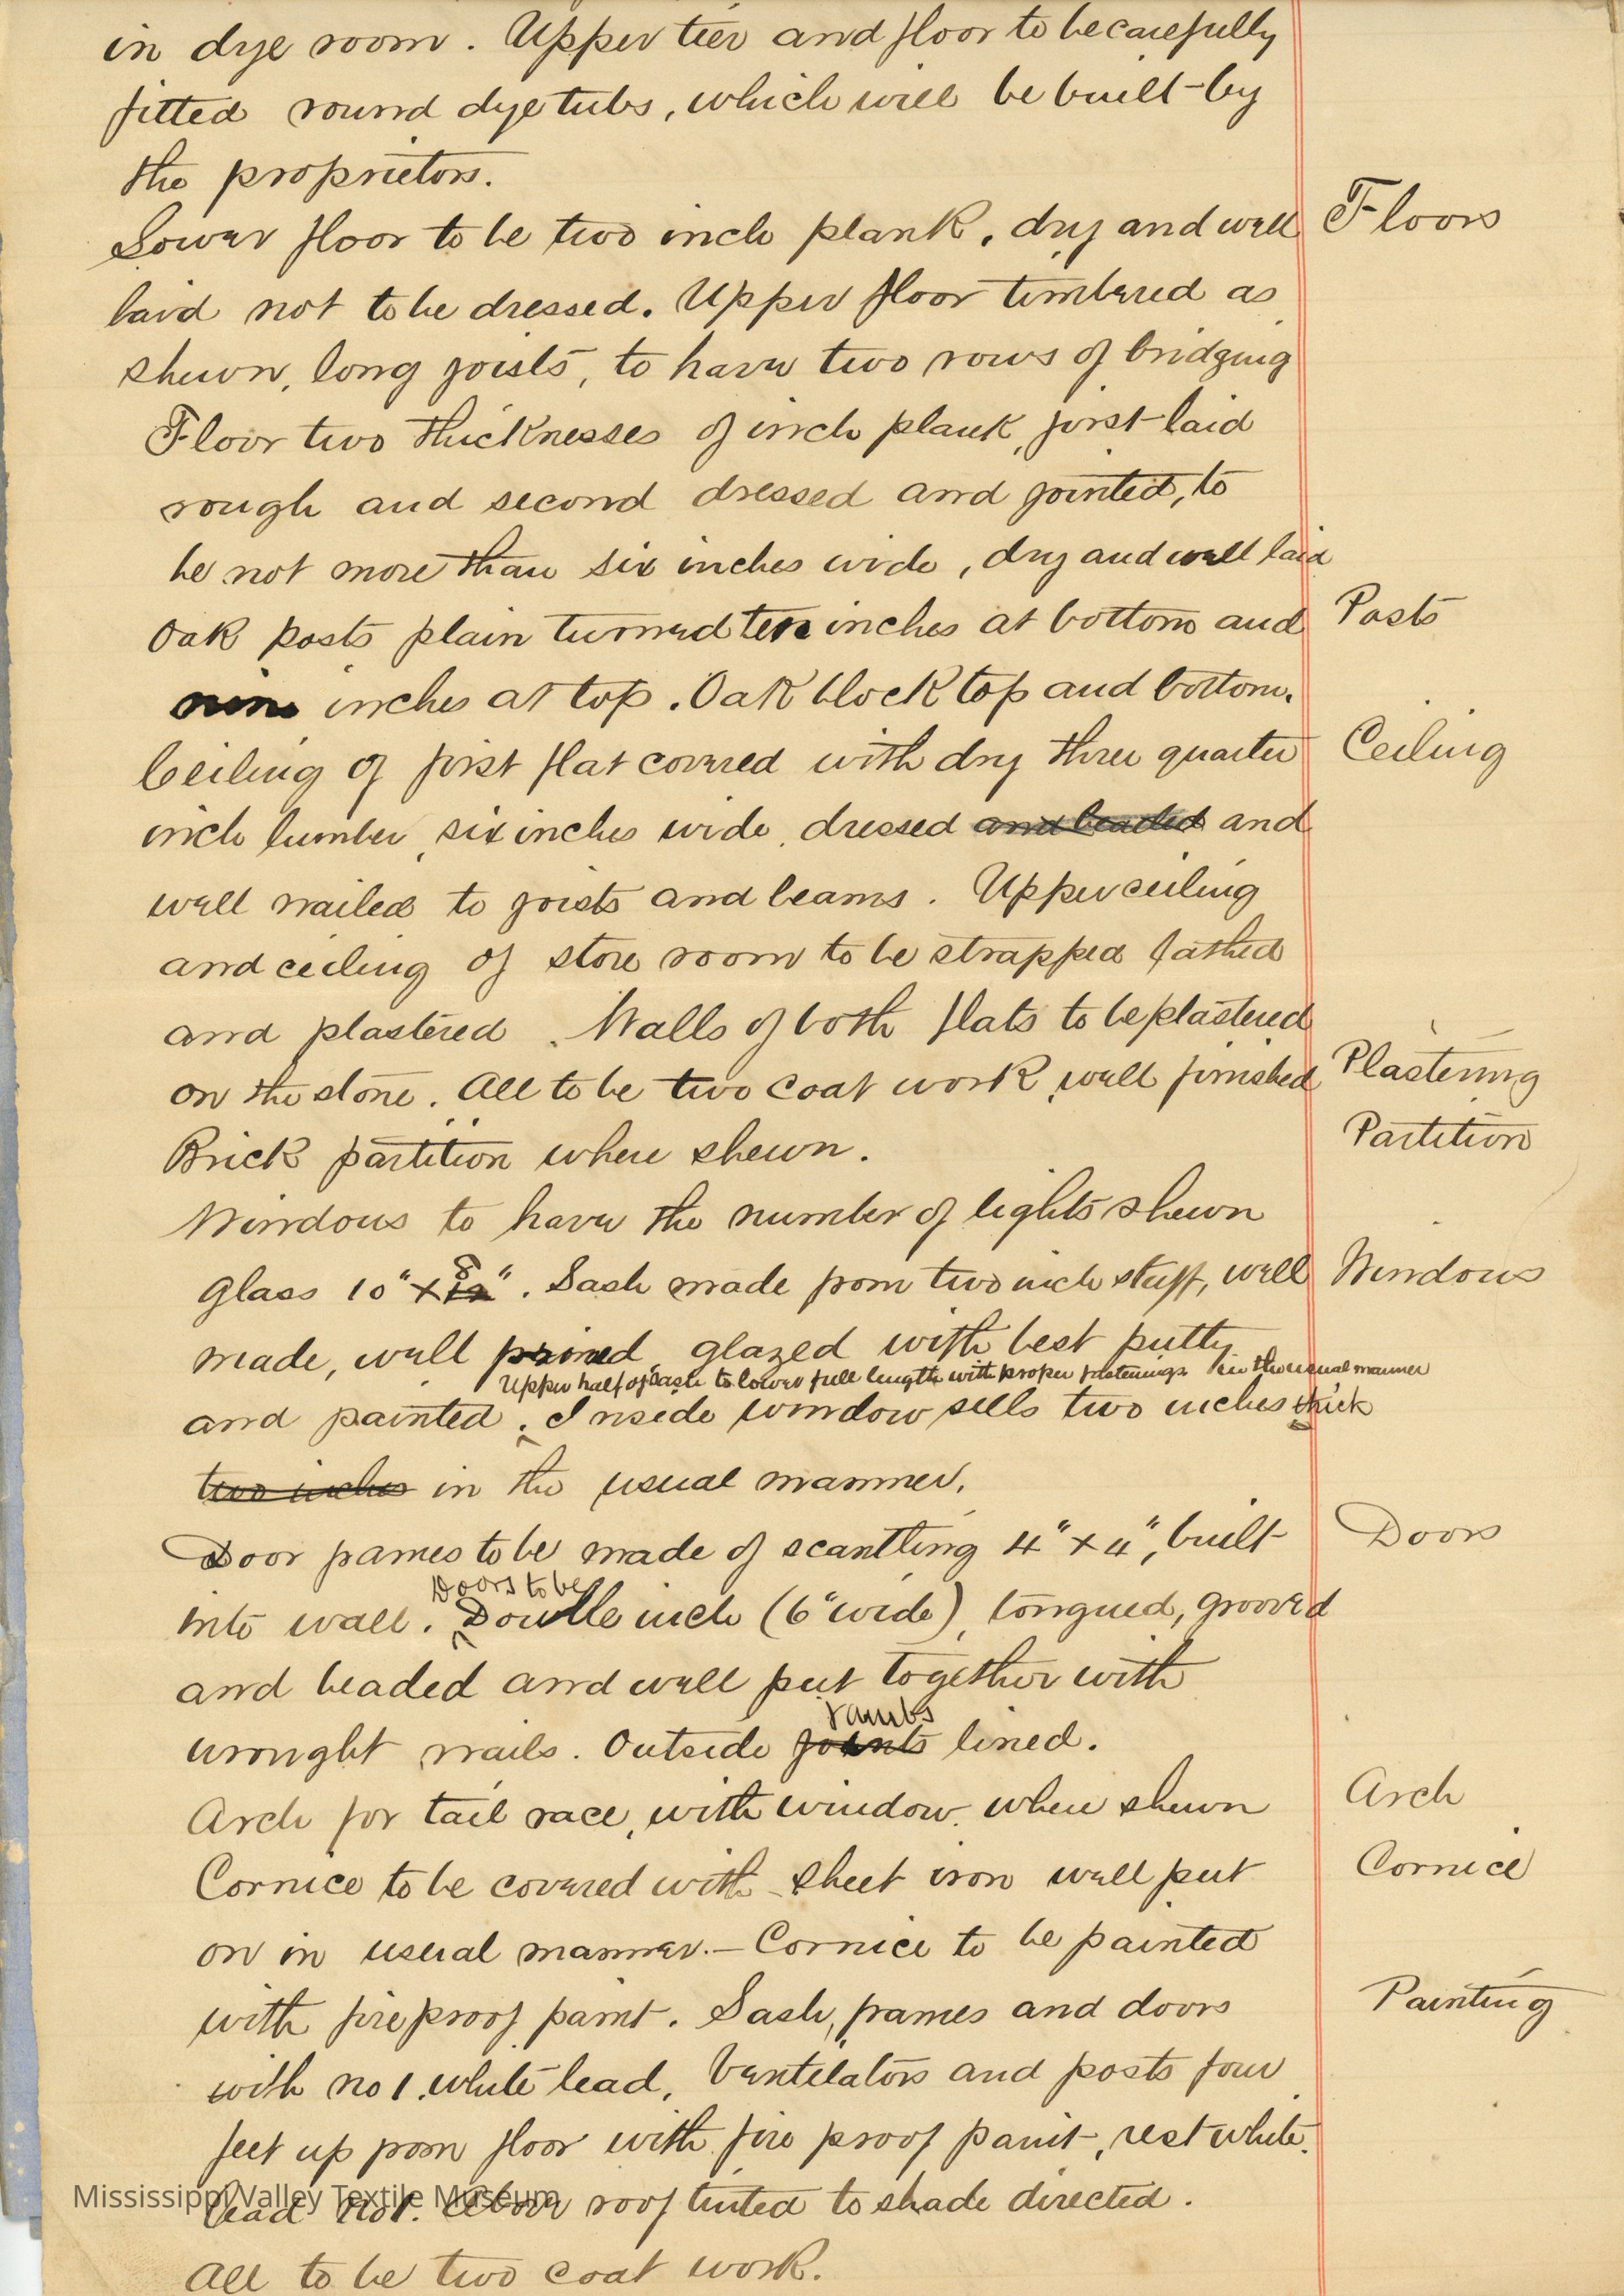 in dye room. Upper tier and floor to be carefully
fitted round dye tubs, which will be built by
the proprietors.
Lower floor to be two inch plank, dry and well Floors
laid not to be dressed. Upper floor timbered as
shewn, long joists, to have two rows of bridging
Floor two thicknesses of inch plank, first laid
rough and second dressed and jointed, to
be not more than six inches wide, dry and well laid
Oak posts plain turned ten inches at bottom and Posts
nine inches at top. Oak block top and bottom.
Ceiling of first flat covered with dry three quarter Ceiling
inch lumber, six inches wide, dressed and beaded and
well nailed to joists and beams. Upper ceiling
and ceiling of store room to be strapped lathed
and plastered. Walls of both flats to be plastered
on the stone. All to be two coat work, well finished Plastering
Brick partition where shewn. Partition
Windows to have the number of lights shewn
8
Glass 10" x 12". Sash made from two inch stuff, well Windows
made, well primed, glazed with best putty
Upper half of sash to lower full length with proper fastenings in the usual manner
and painted. Inside window sills two inches thick
two inches in the usual manner.
Door frames to be made of scantling 4" x 4", built Doors
Doors to be
into wall. Double inch (6" wide), tongued, grooved
and beaded and well put together with
Jambs
wrought nails. Outside joints lined.
Arch for tail race, with window, where shewn Arch
Cornice to be covered with sheet iron well put Cornice
on in usual manner.— Cornice to be painted
with fire proof paint. Sash, frames and doors Painting
with no 1. white lead, Ventilators and posts four
feet up from floor with fire proof paint, rest white
lead No 1. Above roof tinted to shade directed.
All to be two coat work.
Mississippi Valley Textile Museum